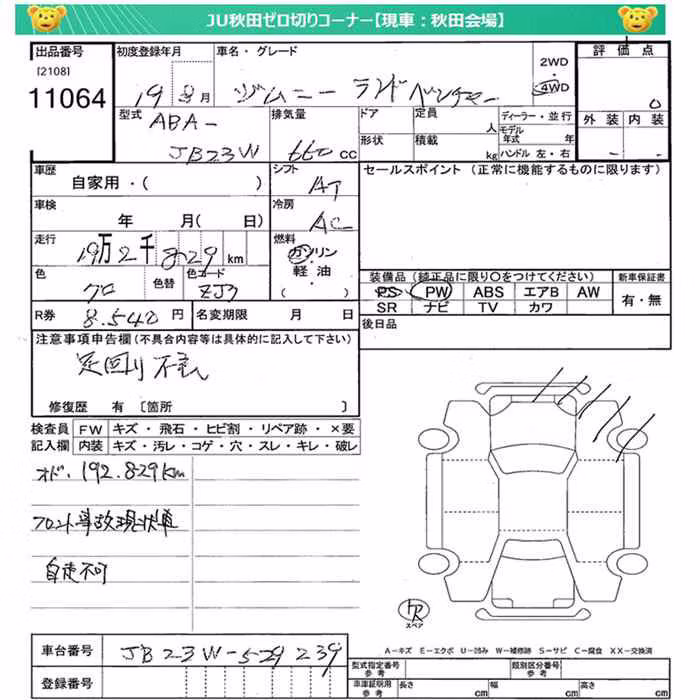 JU秋田ゼロ切りコーナー【現車:秋田会場】
出品番号
[2108]
11064
初度登録年月
19 8月
車名・グレード
ジムニー ランドベンチャー
2WD
・
4WD
評価点
0
外装 内装
- -
型式
ABA-
JB23W
排気量
660 CC
ドア
形状
定員
人
積載
kg
ディーラー・並行
モデル年式 年
ハンドル 左・右
車歴
自家用・( )
シフト
AT
セールスポイント (正常に機能するものに限ります)
車検
年 月( 日)
冷房
AC
走行
19万2千829km
燃料
ガソリン
軽油・
( )
色
クロ
色替
色コード
ZJ3
装備品 (純正品に限り○をつけてください)
新車保証書
PS PW ABS エアB AW
SR ナビ TV カワ
有・無
R券
8.540円
名変期限 月 日
後日品
注意事項申告欄(不具合内容等は具体的に記入して下さい)
足回り不良
修復歴 有 〔箇所 〕
検査員
記入欄
FW キズ・飛石・ヒビ割・リペア跡・×要
内装 キズ・汚レ・コゲ・穴・スレ・キレ・破レ
オド.192.829km
フロント事故現状車
自走不可
スペア
A-キズ E-エクボ U-凹み W-補修跡 S-サビ C-腐食 XX-交換済
車台番号
JB23W-529239
登録番号
型式指定番号
参考
類別区分番号
参考
車庫証明用
参考
長さ cm
幅 cm
高さ cm